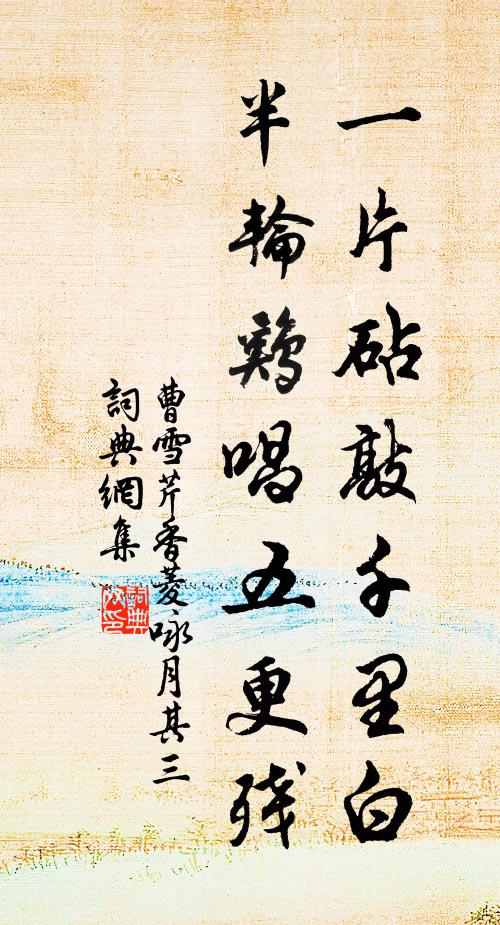 一片砧敲千里白
半輪鷄唱五更殘
曹雪芹香菱咏月其三
詞典網集